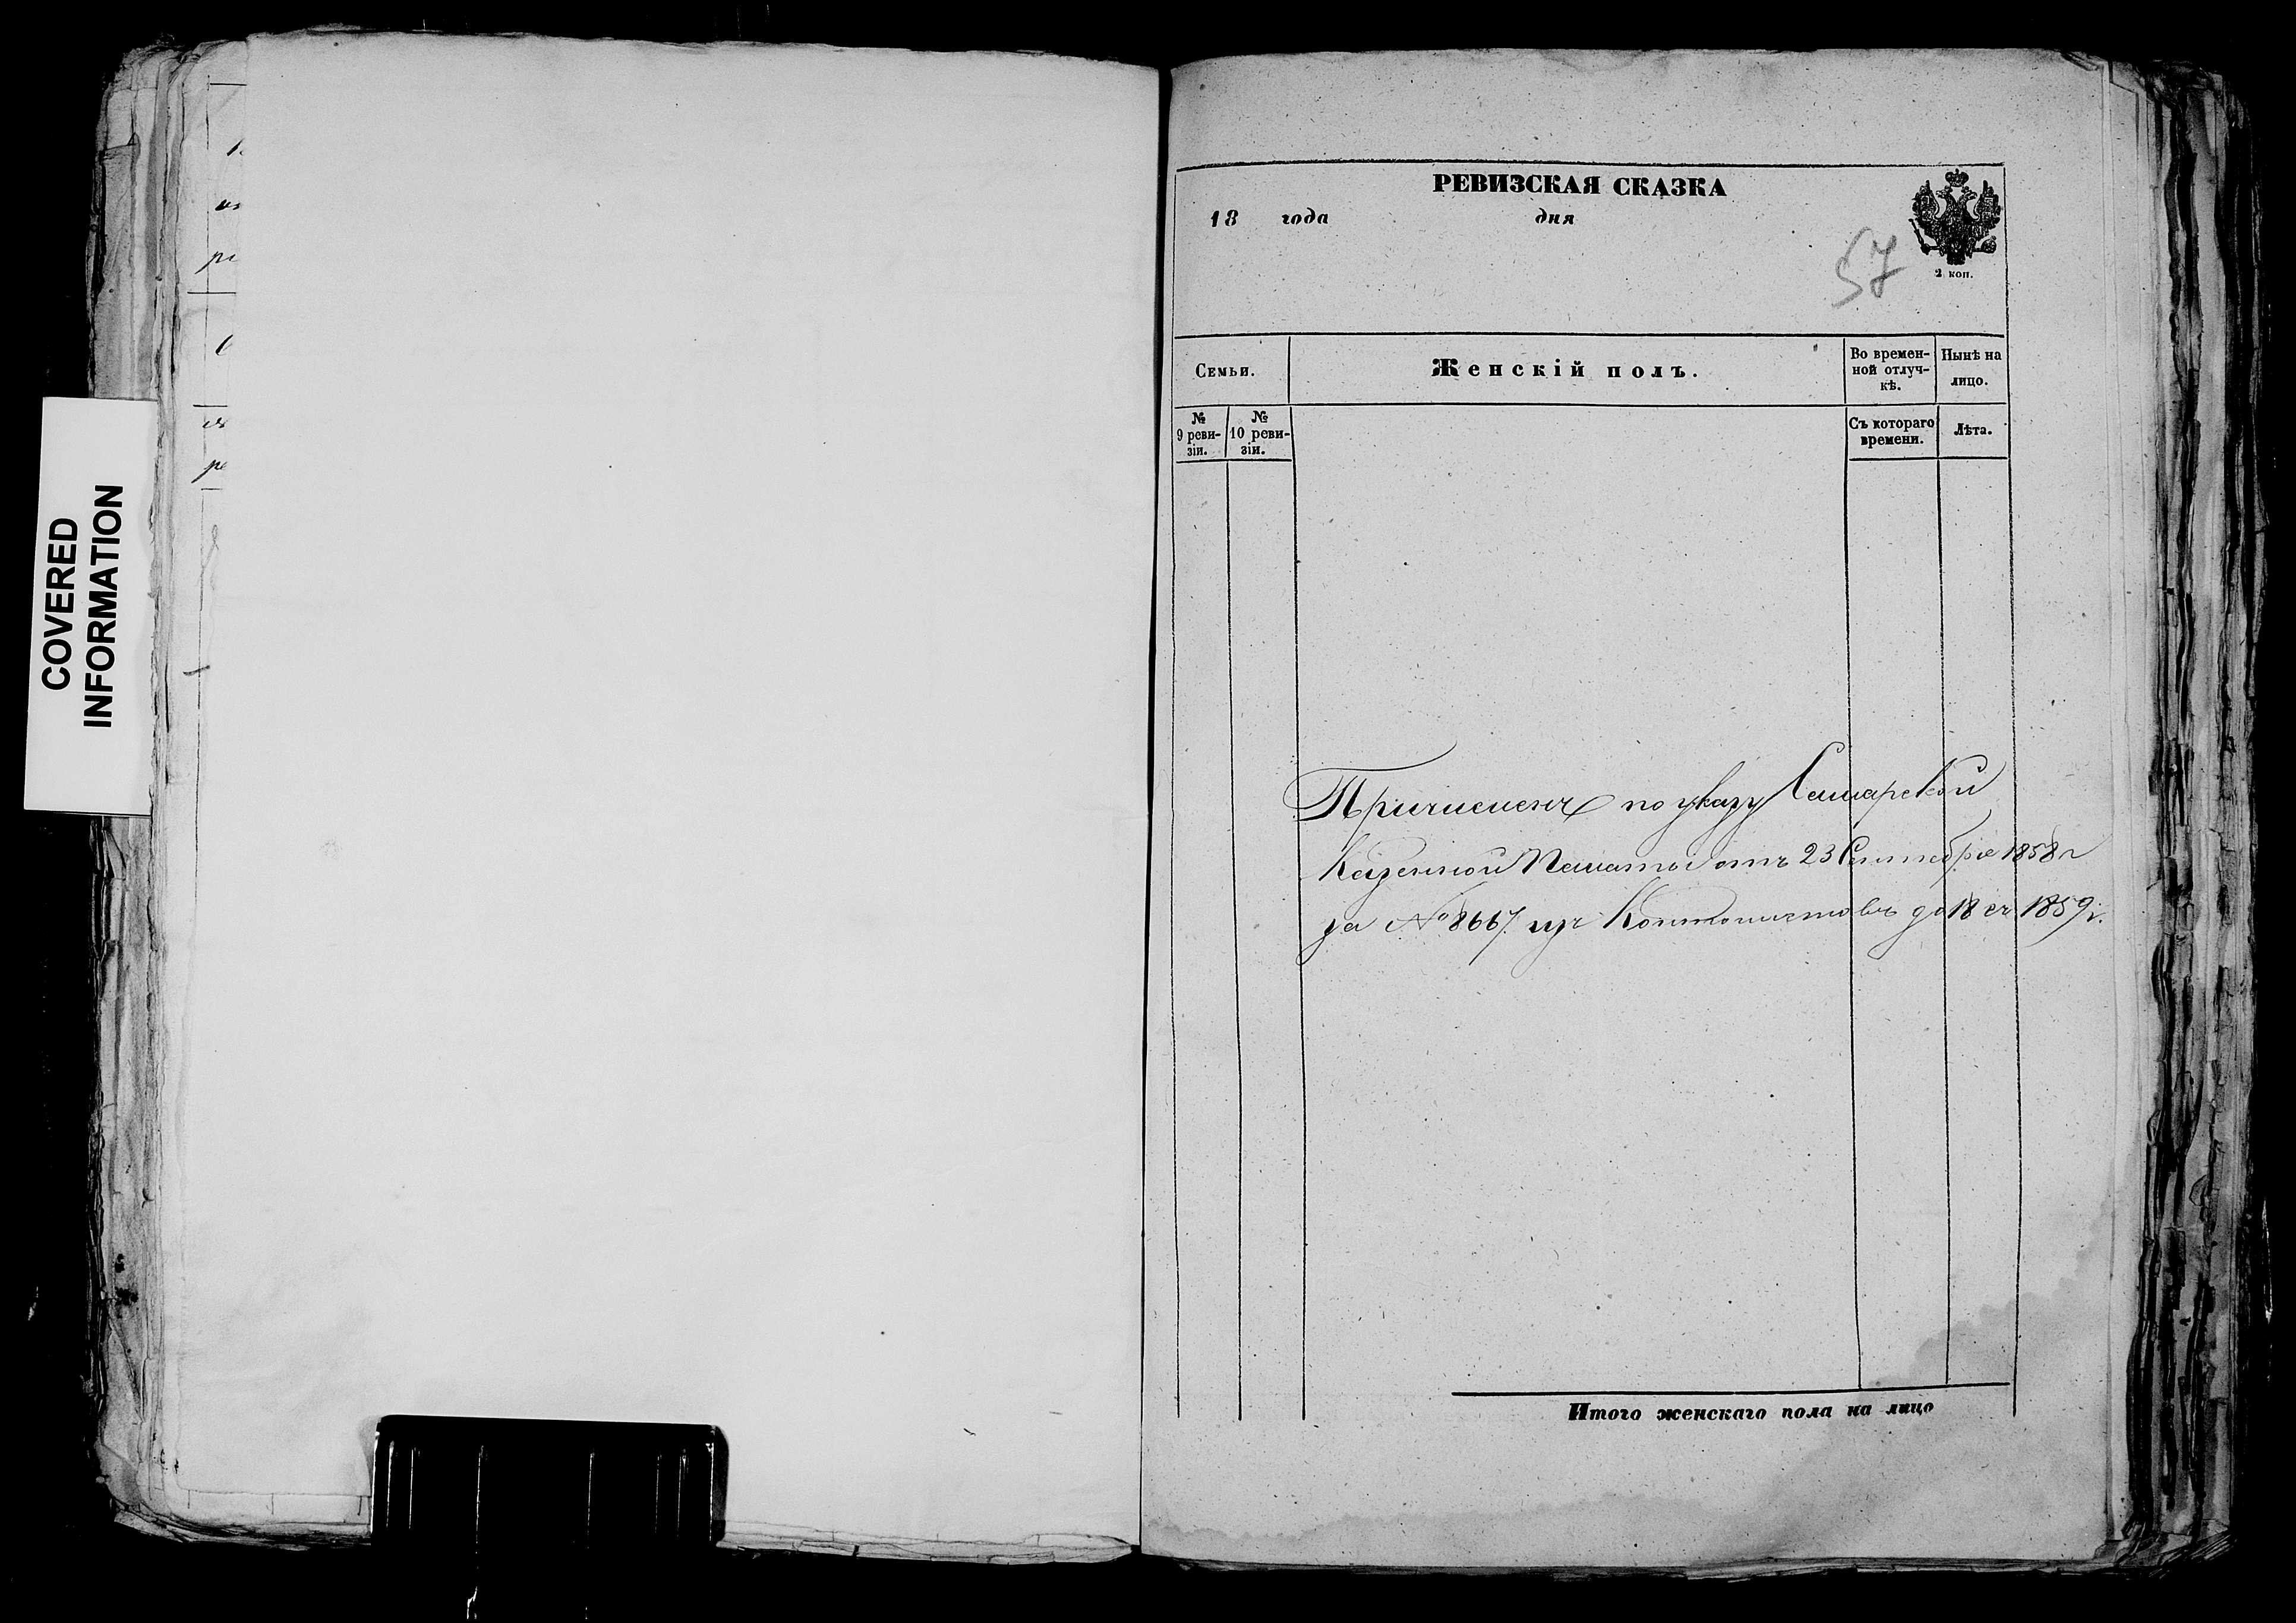 COVERED
INFORMATION
РЕВИЗСКАЯ СКАЗКА
18 года дня
57
2 коп.
Семьи.
Женскій полъ.
Во времен-
ной отлуч-
кѣ.
Нынѣ на
лицо.
№
9 реви-
зіи.
№
10 реви-
зіи.
Съ котораго
времени.
Лѣта.
Причисленъ по указу Самарской
Казенной Палаты отъ 23 Сентября 1858 г
за № 8667 изъ Кантонистовъ до 18 1859 г.
Итого женскаго пола на лицо